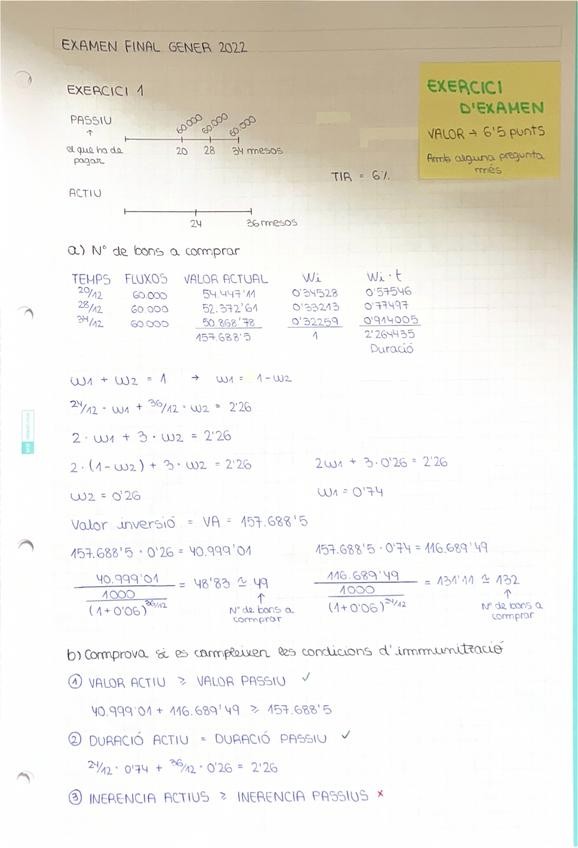 EXAMEN FINAL GENER 2022
EXERCICI D'EXAMEN
VALOR → 6'5 punts
Amb alguna pregunta més
EXERCICI 1
PASSIU
↑
el que ha de pagar
60.000 60.000 60.000
20 28 34 mesos
TIR = 6%
ACTIU
24 36 mesos
a) Nº de bons a comprar
TEMPS FLUXOS VALOR ACTUAL Wi Wi · t
20/12 60.000 54.447'11 0'34528 0'57546
28/12 60.000 52.372'61 0'33213 0'77497
34/12 60.000 50.868'78 0'32259 0'914005
157.688'5 1 2'264435
Duració
W1 + W2 = 1 → W1 = 1-W2
24/12 · W1 + 36/12 · W2 = 2'26
2 · W1 + 3 · W2 = 2'26
2 · (1-W2) + 3 · W2 = 2'26 2W1 + 3·0'26 = 2'26
W2 = 0'26 W1 = 0'74
Valor inversió = VA = 157.688'5
157.688'5 · 0'26 = 40.999'01 157.688'5 · 0'74 = 116.689'49
40.999'01 116.689'49
= 48'83 ≃ 49 = 131'11 ≃ 132
1000 1000
(1+0'06)^36/12 (1+0'06)^24/12
↑ ↑
Nº de bons a comprar Nº de bons a comprar
b) Comprova si es compleixen les condicions d'immunització
① VALOR ACTIU ≥ VALOR PASSIU ✓
40.999'01 + 116.689'49 ≥ 157.688'5
② DURACIÓ ACTIU = DURACIÓ PASSIU ✓
24/12 · 0'74 + 36/12 · 0'26 = 2'26
③ INERENCIA ACTIUS ≥ INERENCIA PASSIUS ×